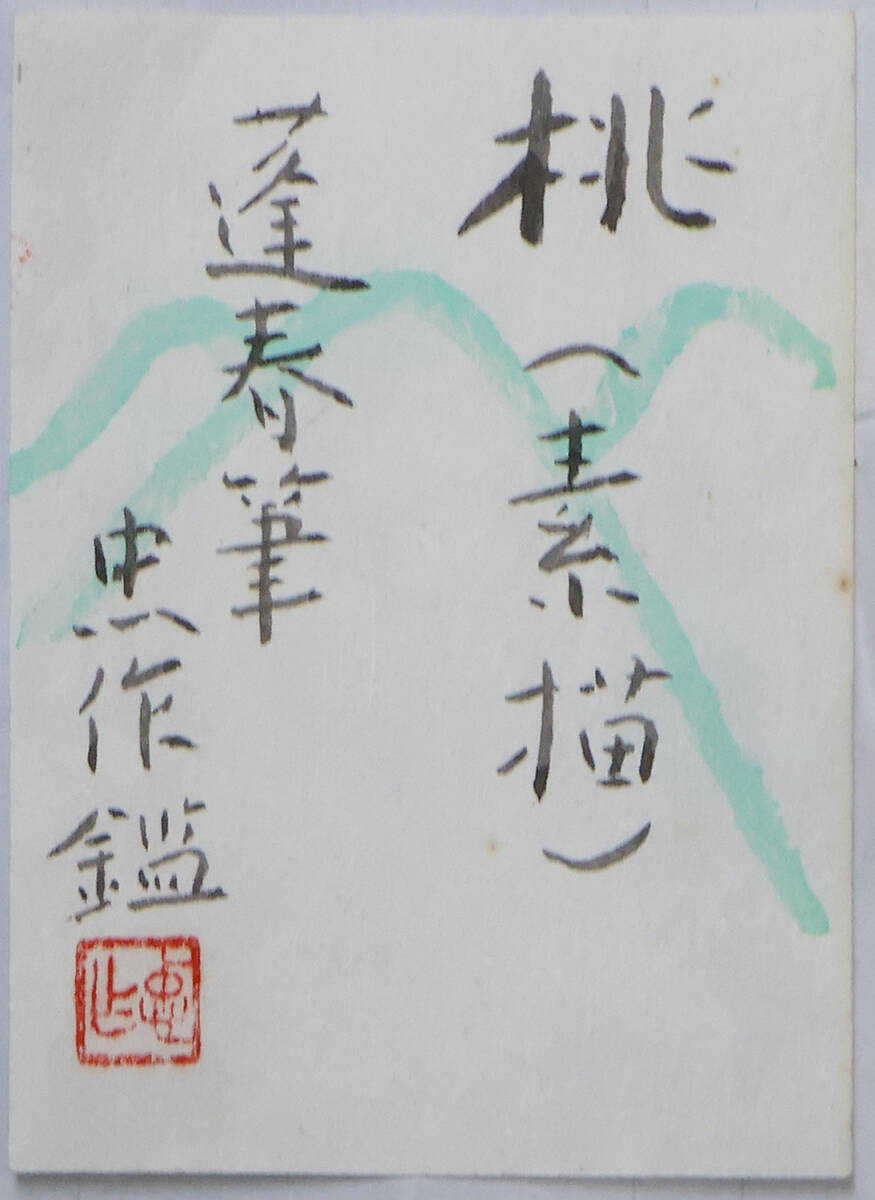 桃(素描)
蓬春筆
忠作鑑
忠作